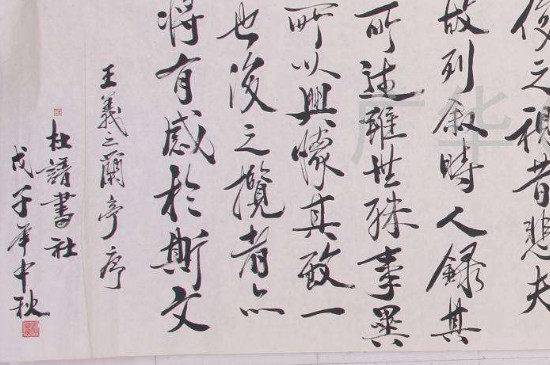 後之視昔悲夫
故列叙時人録其
所述雖世殊事異
所以興懷其致一
也後之攬者亦
將有感於斯文
王羲之蘭亭序
杜書社
戊子年中秋
广华